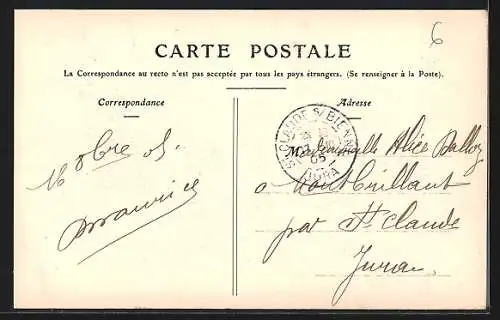 6
CARTE POSTALE
La Correspondance au recto n'est pas acceptée par tous les pays étrangers. (Se renseigner à la Poste).
Correspondance
Adresse
ST CLAUDE S/ BIENNE
05
JURA
16 8bre 05.
Maurice
Mademoiselle Alice Dalloz
à Montbrillant
par St Claude
Jura.